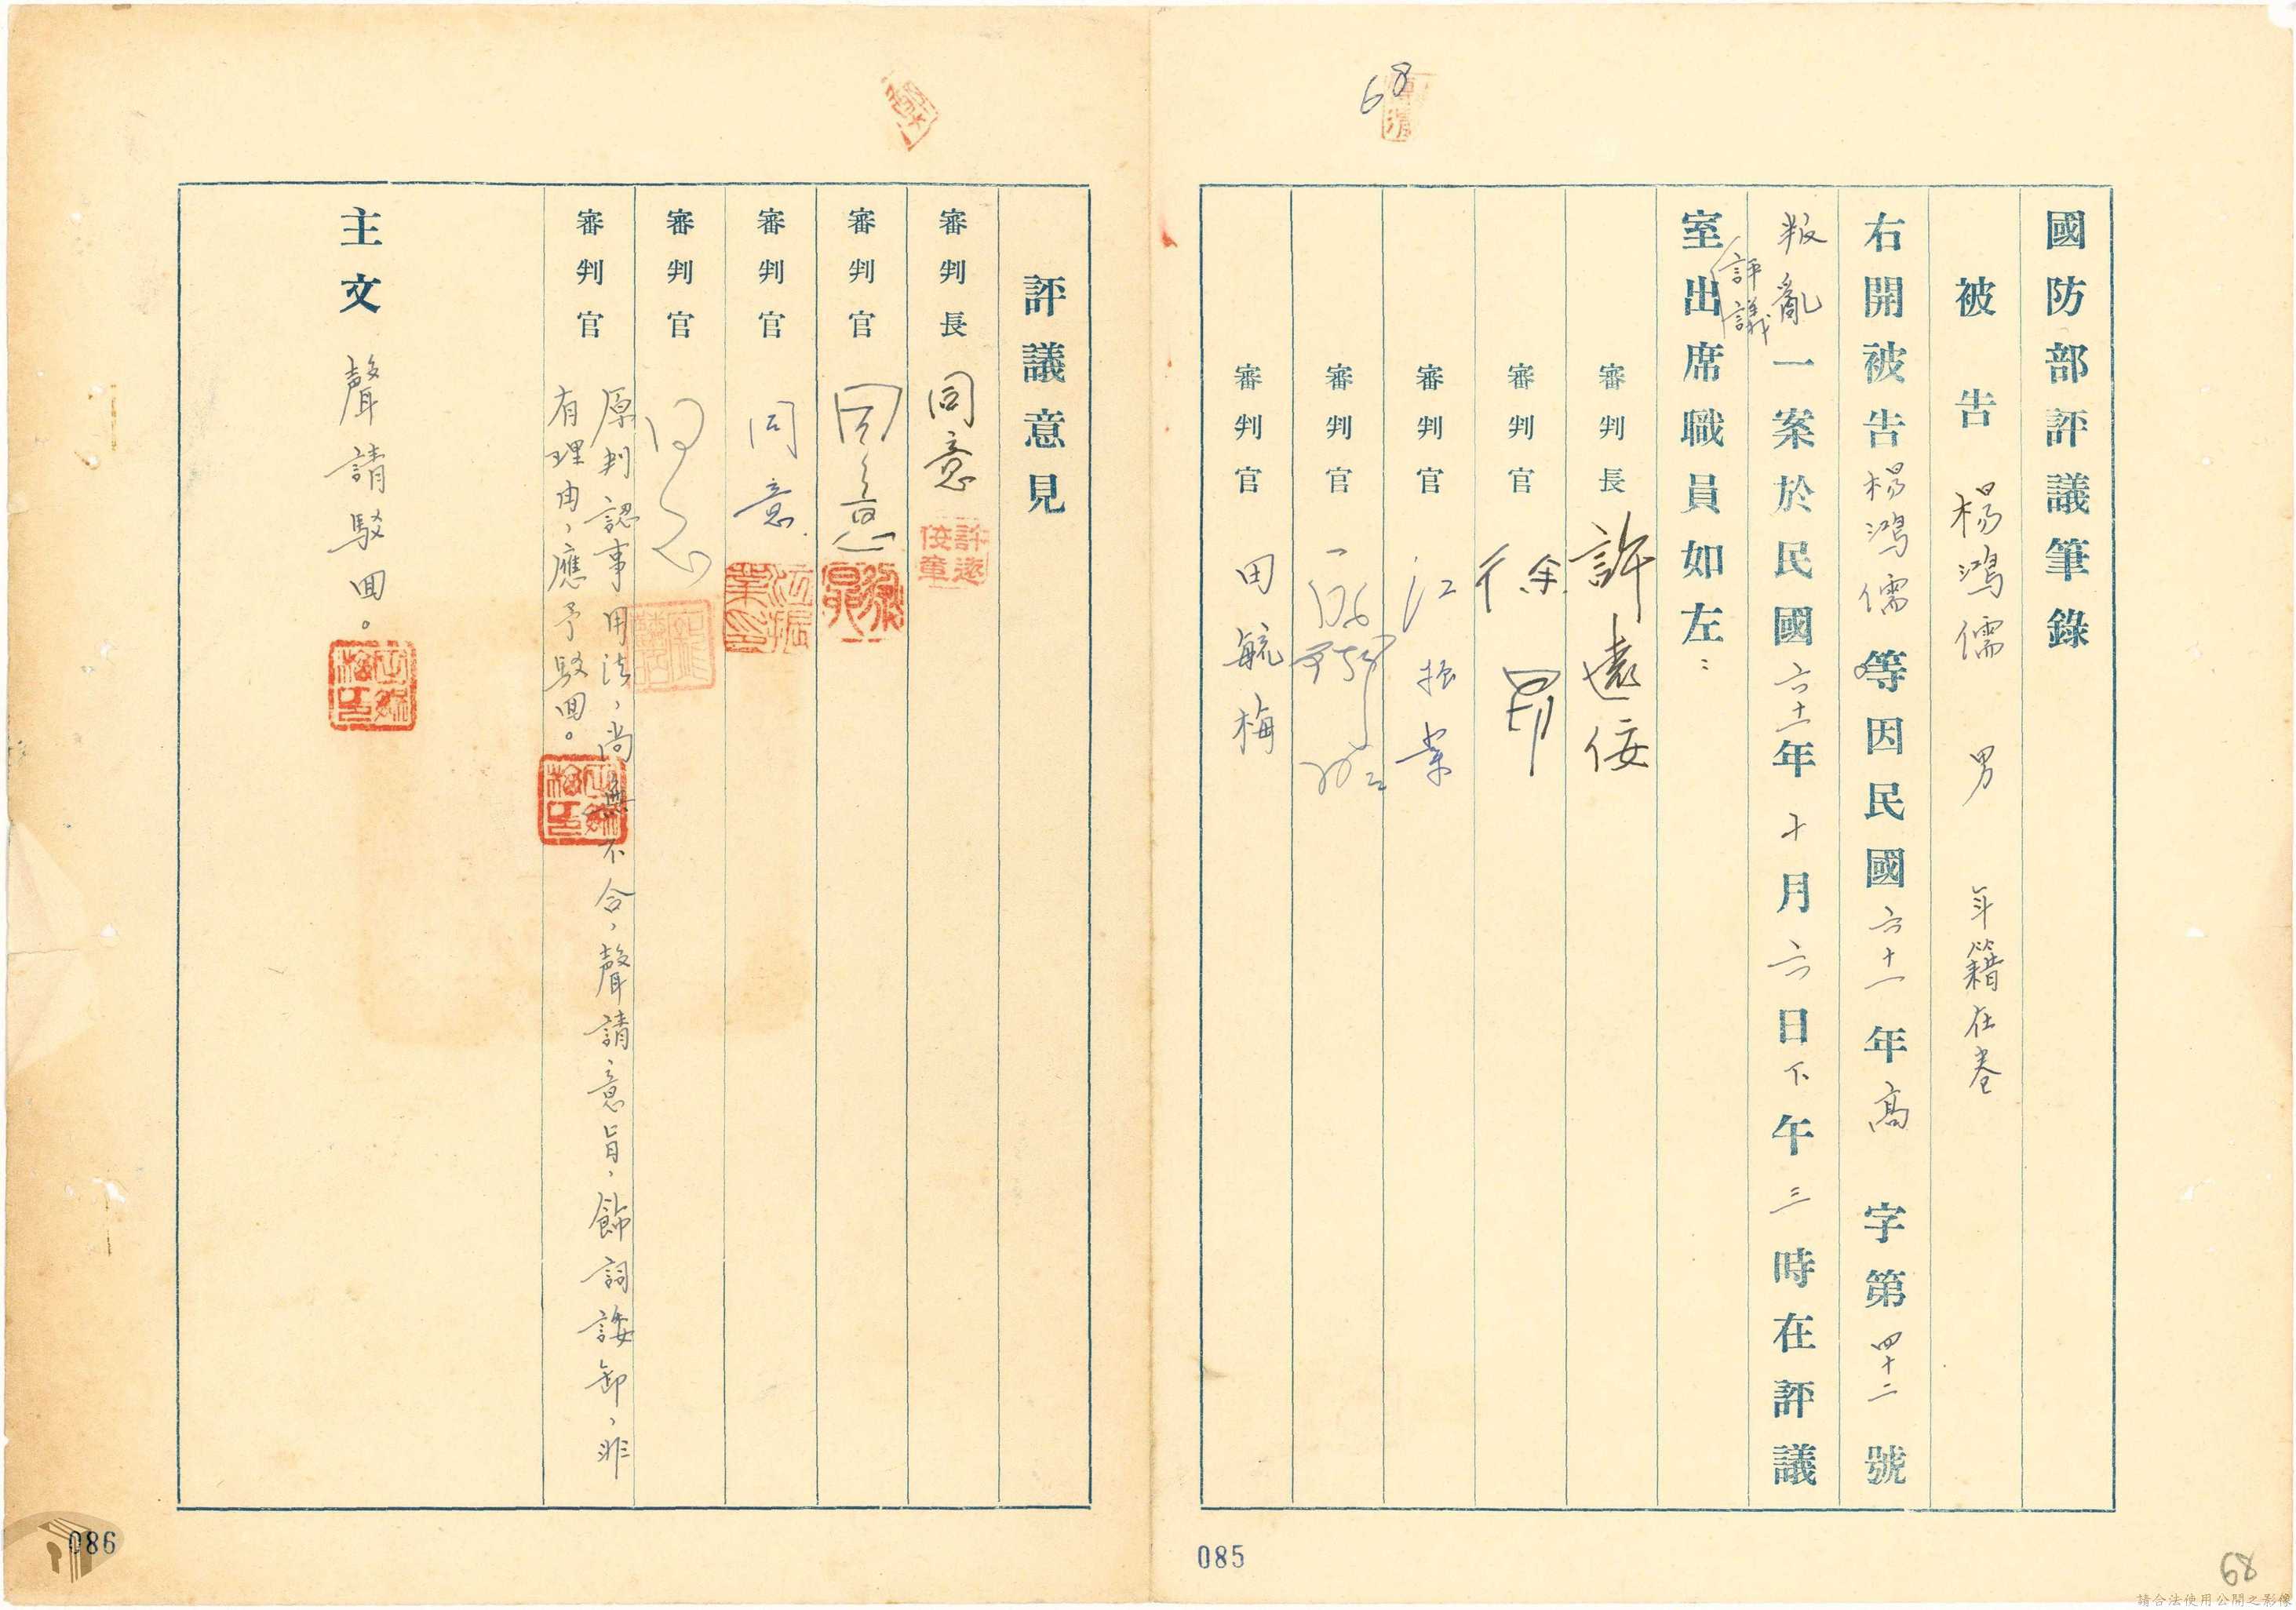 68
國防部評議筆錄
被告 楊鴻儒 男 年籍在卷
右開被告楊鴻儒等因民國六十一年高字第四十二號
叛亂一案於民國六十一年十月六日下午三時在評議
評議
室出席職員如左：
審判長 許遠俀
審判官 徐昂
審判官 江振業
審判官
審判官 田毓梅
085
68
評議意見
審判長 同意
審判官 同意
審判官 同意
江振業印
審判官 同意
審判官 原判認事用法，尚無不合，聲請意旨，飾詞諉卸，非
有理由，應予駁回。
主文 聲請駁回。
086
請合法使用公開之影像